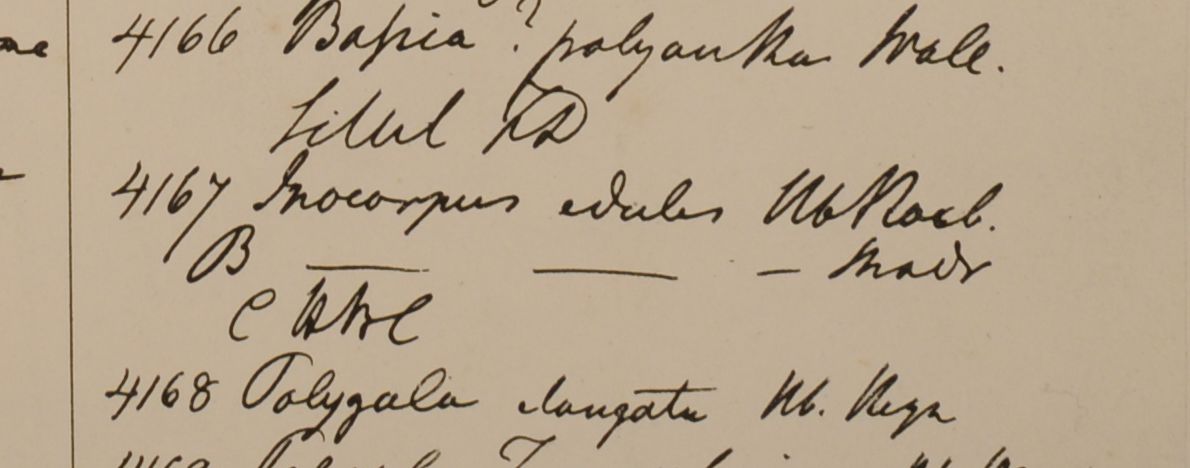 4166 Bassia ? polyantha Wall.
Sillet FD
4167 Inocarpus edules Hb Roxb.
B — — — Madr
C HBC
4168 Polygala elongata Hb.